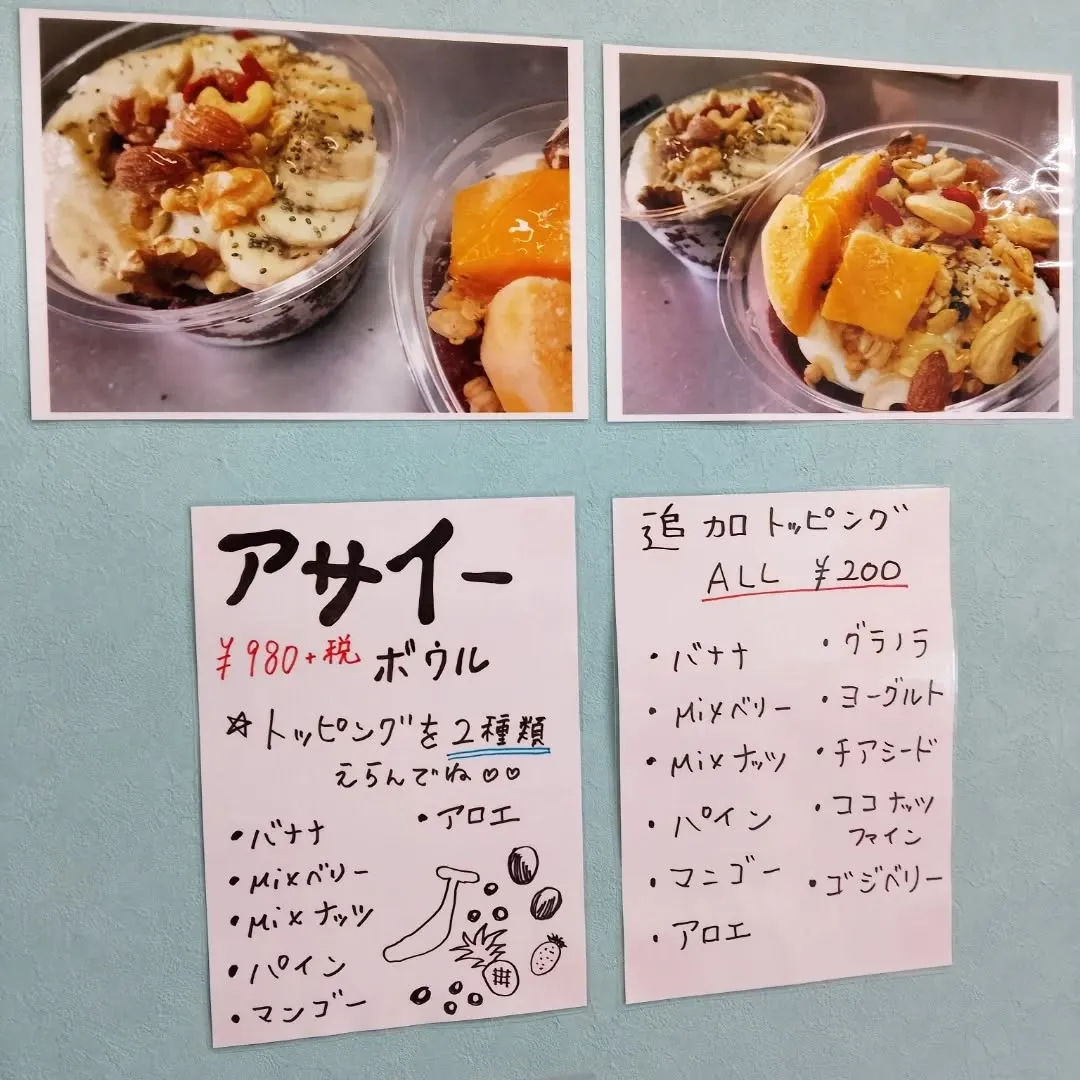 アサイー
¥980+税 ボウル
☆トッピングを2種類
えらんでね♡♡
・バナナ
・Mixベリー
・Mixナッツ
・パイン
・マンゴー
・アロエ
追加トッピング
ALL ¥200
・バナナ
・Mixベリー
・Mixナッツ
・パイン
・マンゴー
・アロエ
・グラノラ
・ヨーグルト
・チアシード
・ココナッツ
ファイン
・ゴジベリー